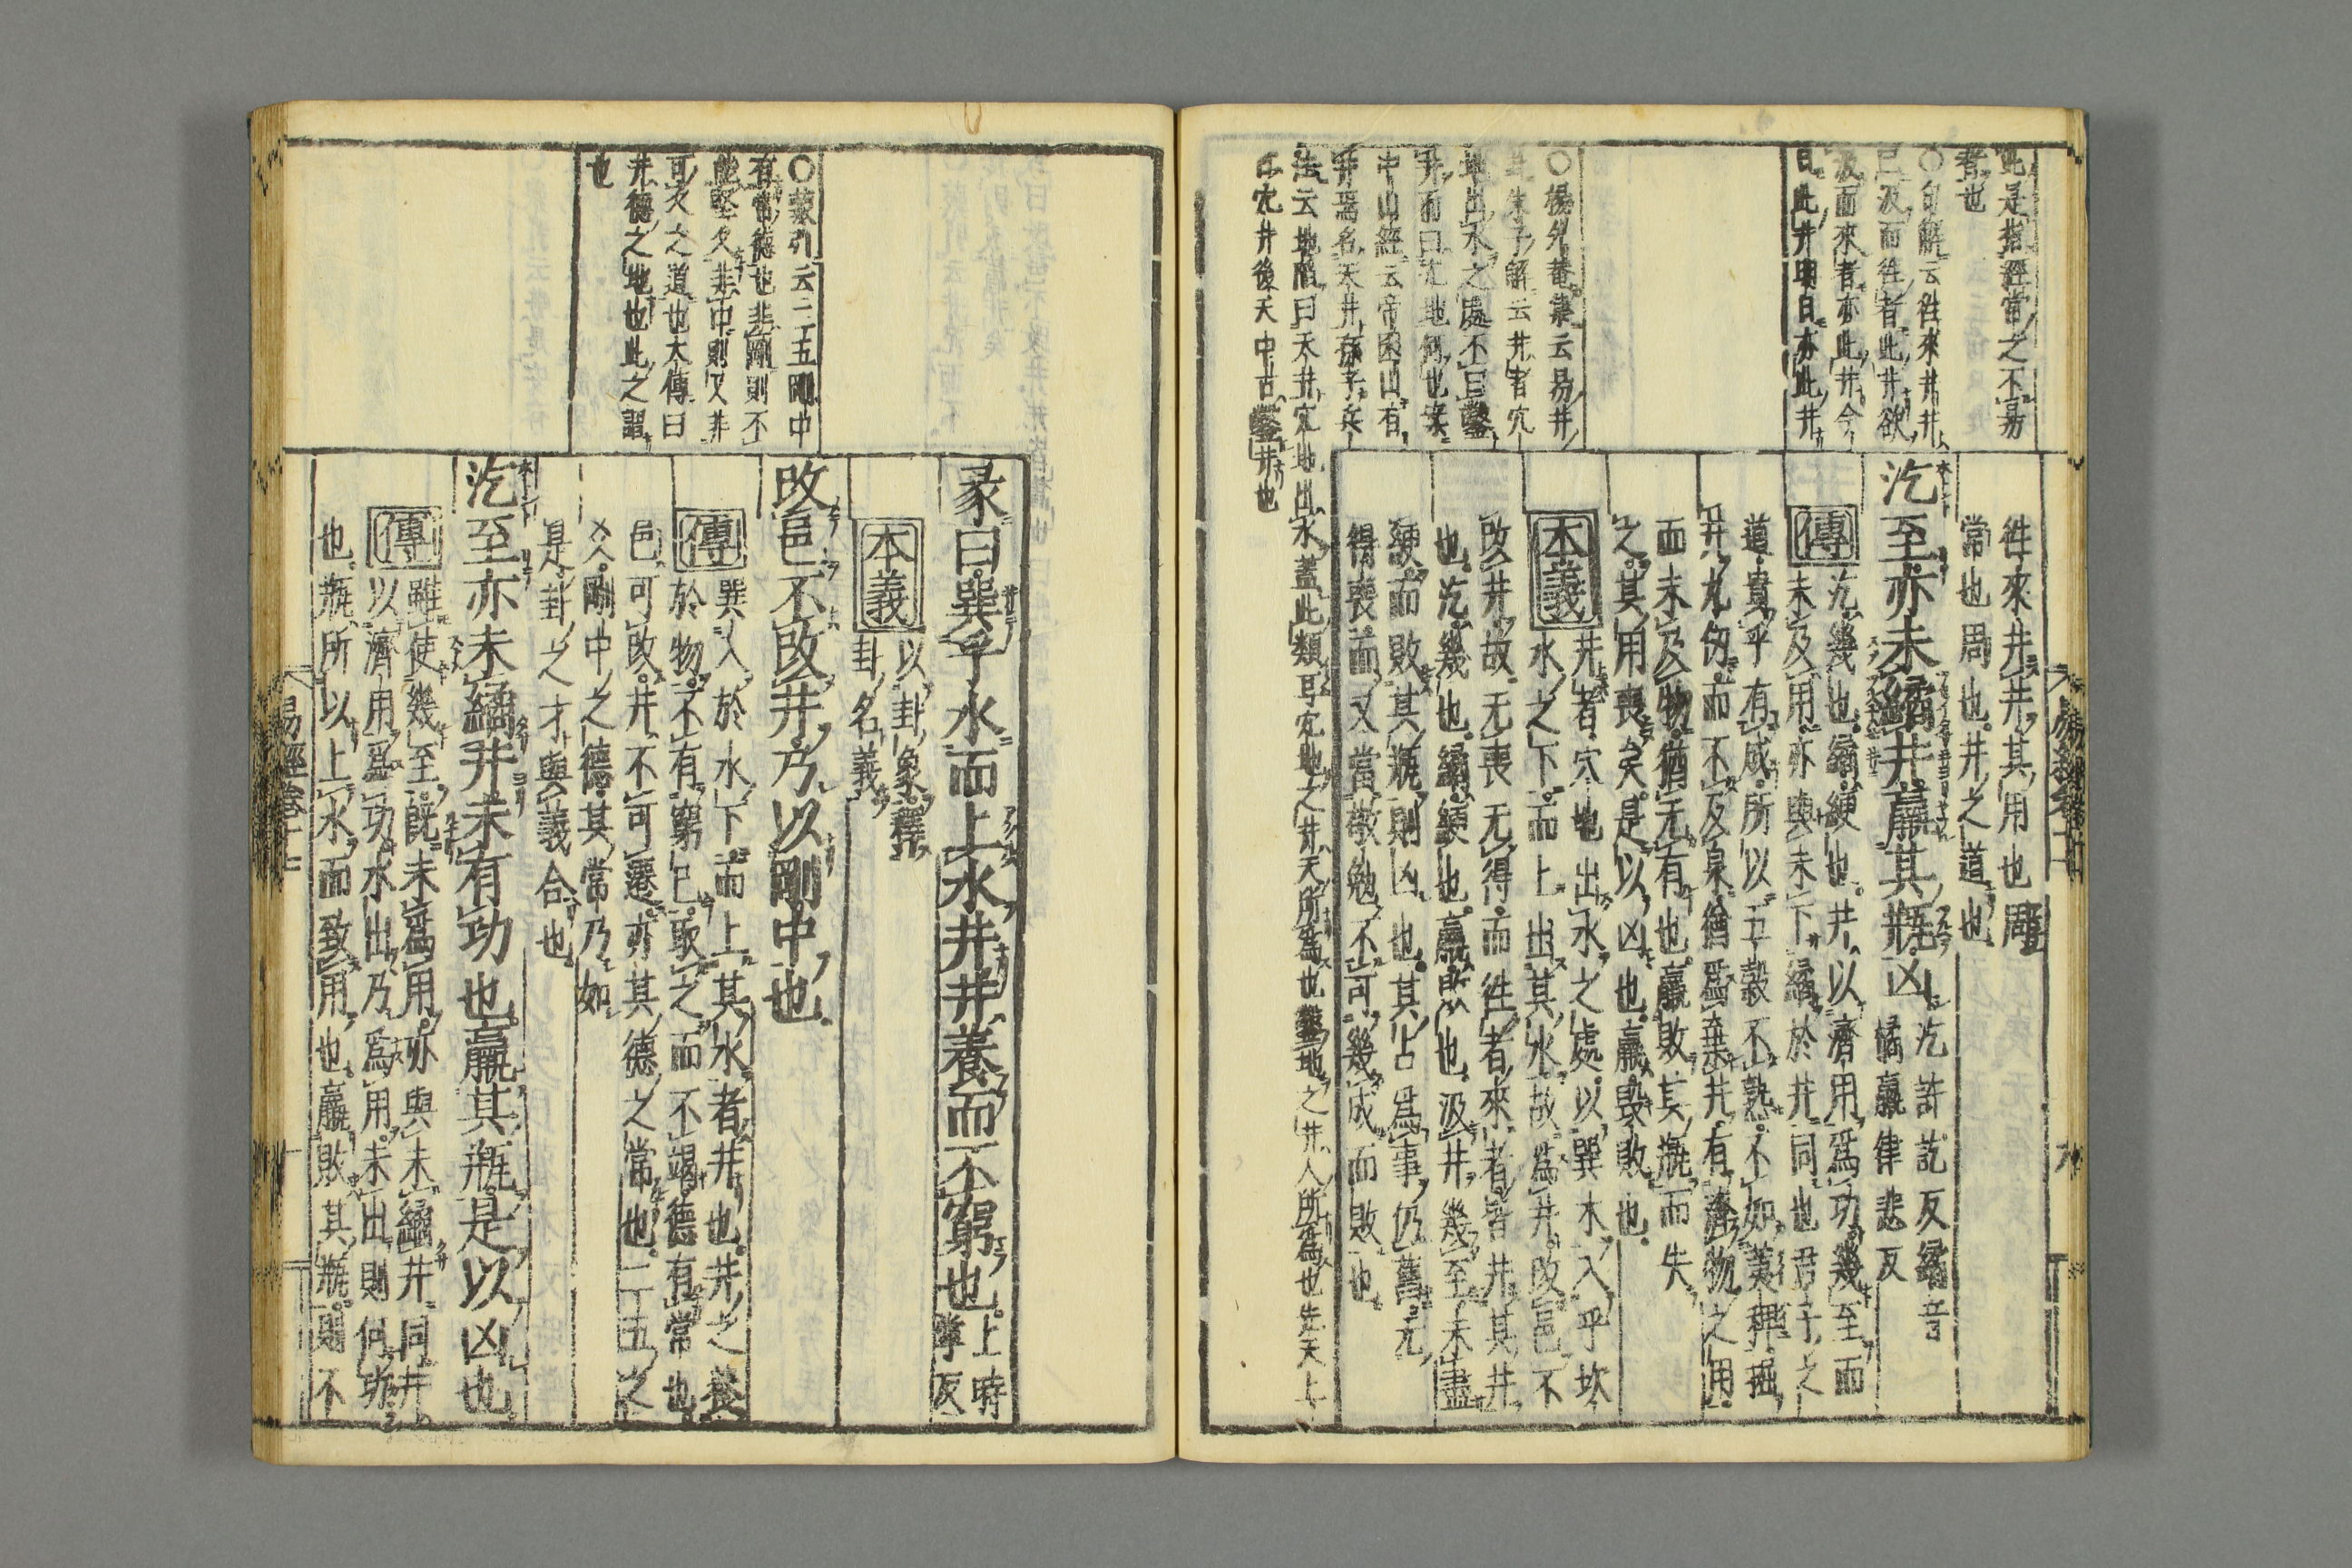 此是指經當之不易
者也
○句解云徃來井井
已汲而徃者此井欲
汲而來者亦此井今
日此井明日亦此井
○楊升菴集云易井
井朱子解云井者穴
地出水之處不曰鑿
井而曰穴地何也案
中山經云帝囷山有
井焉名天井孫子兵
法云地陷曰天井穴地出水蓋此類耳穴地之井天所爲也鑿地之井人所爲也先天上
古穴井後天中古鑿井也
徃來井井其用也周
常也周也井之道也
汔至亦未繘井羸其瓶凶
汔許訖反繘音
橘羸律悲反
傳
汔幾也繘綆也井以濟用爲功幾至而
未及用亦與未下繘於井同也君子之
道貴乎有成所以五穀不熟不如荑稗掘
井九仞而不及泉猶爲棄井有濟物之用
而未及物猶无有也羸敗其瓶而失
之其用喪矣是以凶也羸毀敗也
本義
井者穴地出水之處以巽木入乎坎
水之下而上出其水故爲井改邑不
改井故无喪无得而徃者來者皆井其井
也汔幾也繘綆也羸敗也汲井幾至未盡
綆而敗其瓶則凶也其占爲事仍舊无
得喪而又當敬勉不可幾成而敗也
○蒙引云二五剛中
有常德也非剛則不
能堅久非中則又非
可久之道也大傳曰
井德之地也此之謂
也
彖曰巽乎水而上水井井養而不窮也
上時
掌反
本義
以卦象釋
卦名義
改邑不改井乃以剛中也
傳
巽入於水下而上其水者井也井之養
於物不有窮已取之而不竭德有常也
邑可改井不可遷亦其德之常也二五之
爻剛中之德其常乃如
是卦之才與義合也
汔至亦未繘井未有功也羸其瓶是以凶也
傳
雖使幾至旣未爲用亦與未繘井同井
以濟用爲功水出乃爲用未出則何功
也瓶所以上水而致用也羸敗其瓶則不
易經卷十七